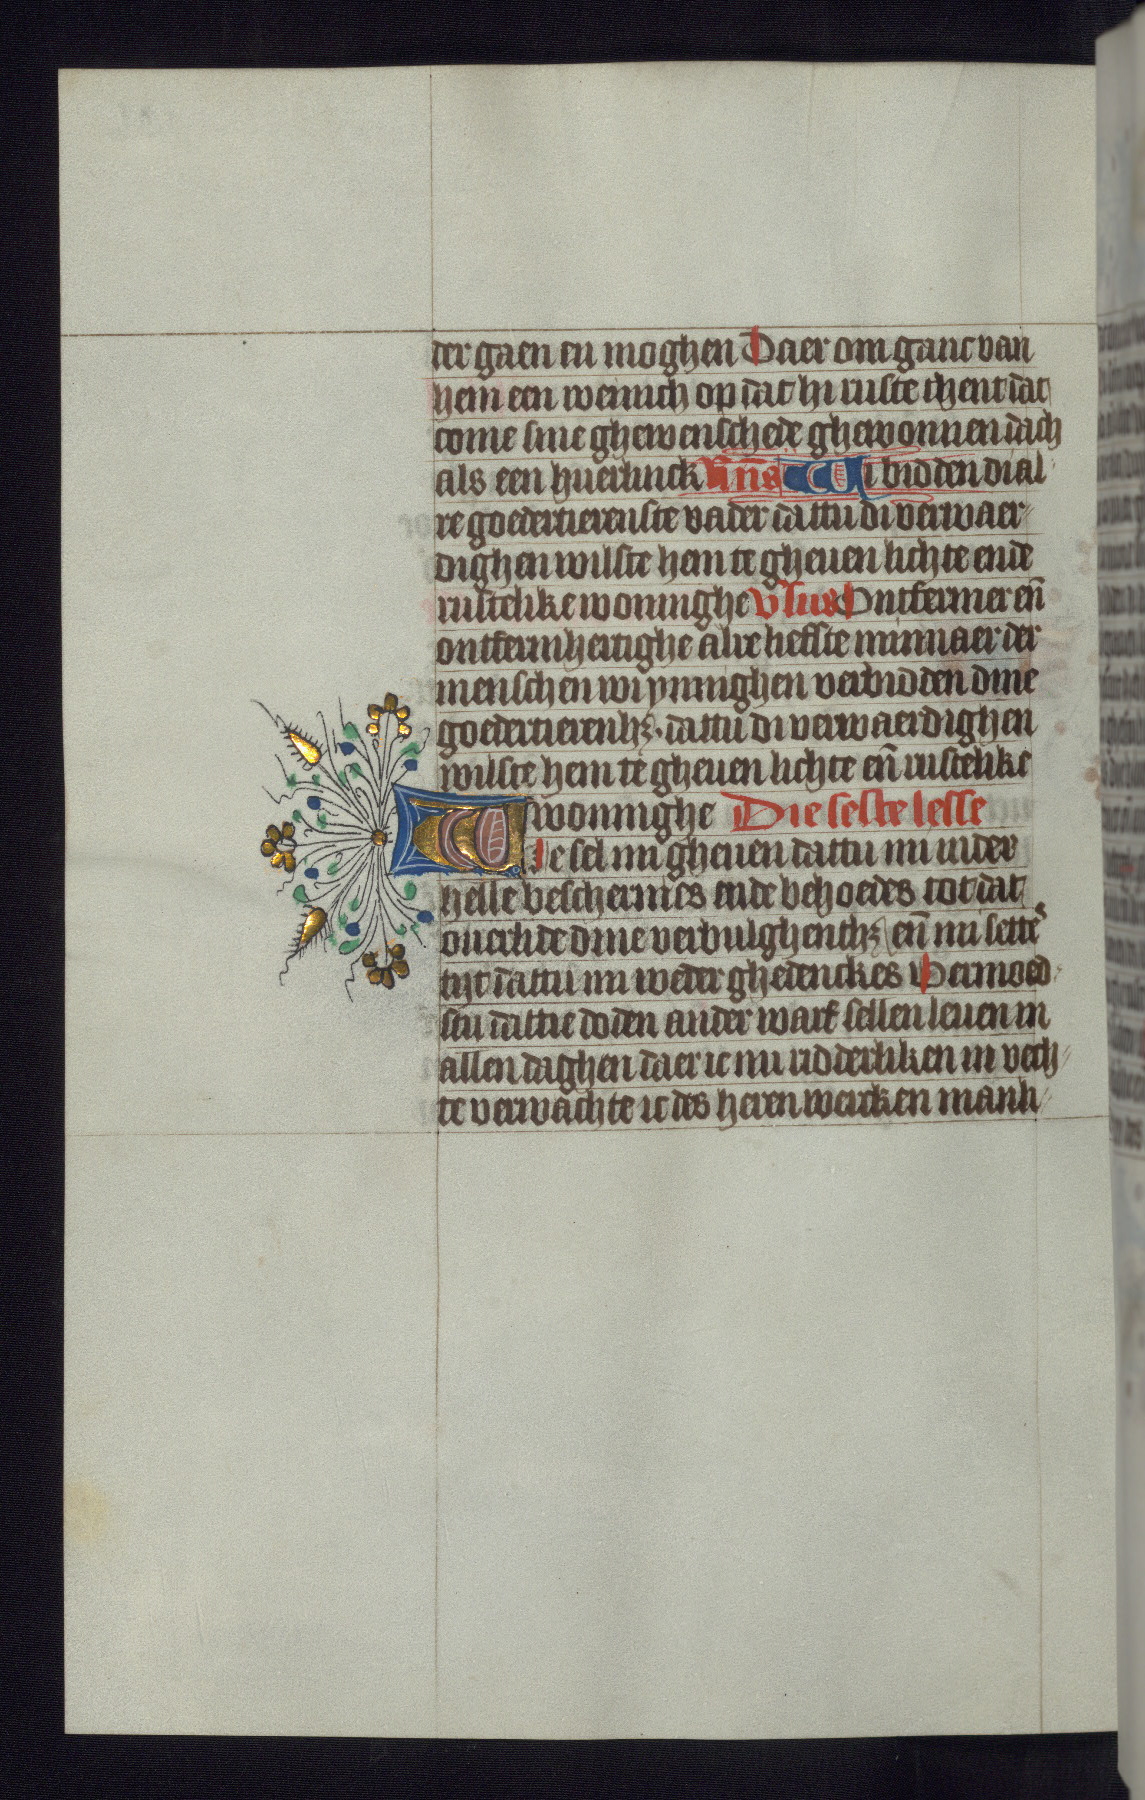 der gaen en moghen Daer om ganc van
hem een wenich op dat hi ruste thent dat
come sine ghewenschede ghewonnen dach
als een huerlinck Rns Wi bidden di al-
re goedertierenste vader dattu di verwaer-
dighen wilste hem te gheuen lichte ende
rustelike woninghe vsus Ontfermer eñ
ontfermhertighe alre liefste minnaer der
menschen wi ynnighen verbidden dine
goedertierenhz. dattu di verwaerdighen
wilste hem te gheuen lichte eñ rustelike
woninghe Die seste lesse
Wie sel mi gheuen dattu mi inider
helle beschermes ende behoedes tot dat
ouerlide dine verbulghenthz eñ mi sette
tijt dattu mi weder ghedenckes Vermoed-
stu dattie doden ander warf sellen leuen in
allen daghen daer ic nu ridderliken in vech-
te verwachte ic des heren wercken manli-